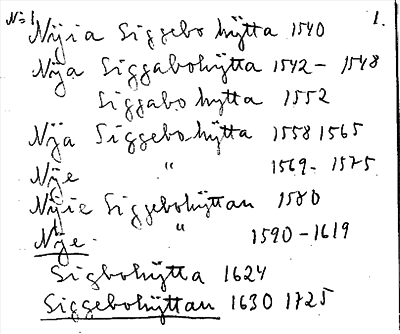 N:1 1.
Nÿia Siggebo hÿtta 1540
Nÿa Siggabohÿtta 1542 – 1548
Siggabo hytta 1552
Nÿa Siggebo-hÿtta 1558 1565
Nÿe " 1569 - 1575
Nÿie Siggebohÿttan 1580
Nÿe " 1590 – 1619
Sigbohÿtta 1624
Siggebohÿttan 1630 1725